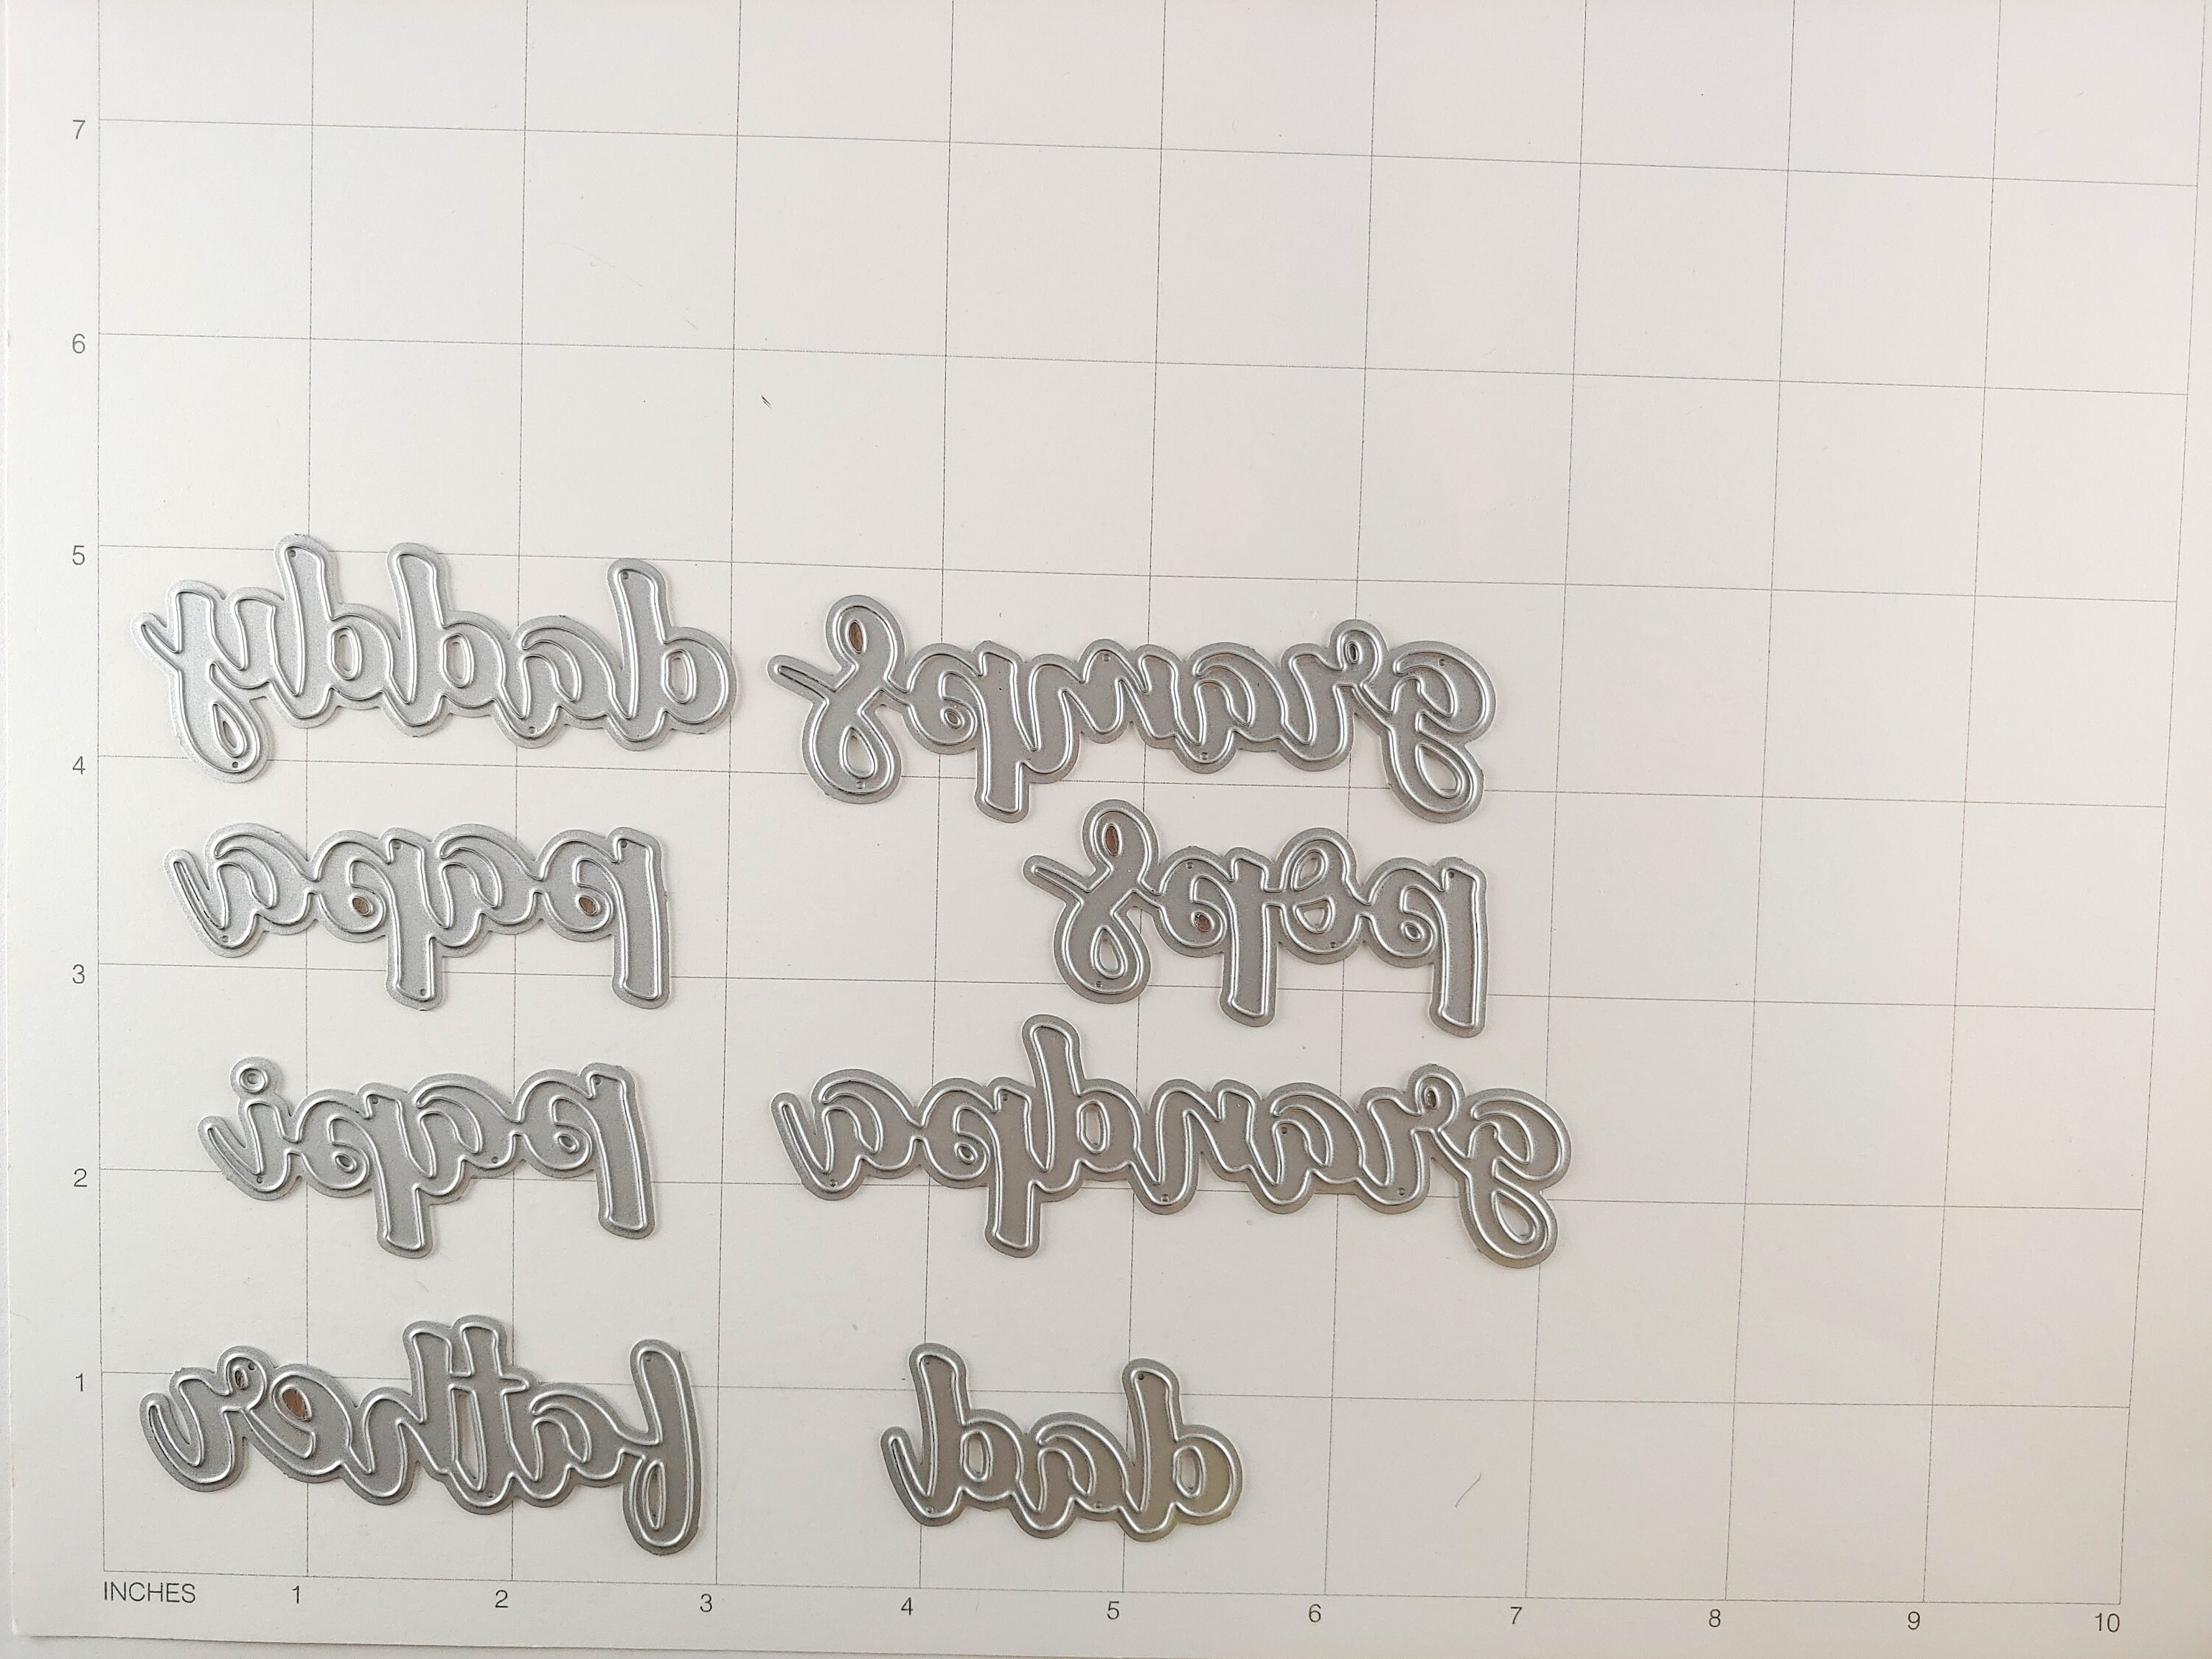 7
6
5
daddy gramps
4
papa pops
3
papi grandpa
2
father dad
1
INCHES 1 2 3 4 5 6 7 8 9 10